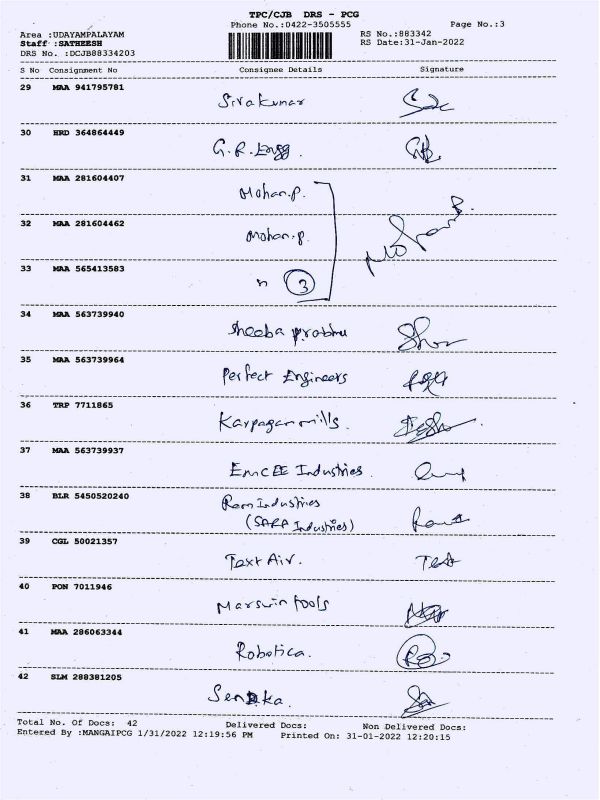 TPC/CJB DRS - PCG
Phone No.:0422-3505555 Page No.:3
Area :UDAYAMPALAYAM RS No.:883342
Staff :SATHEESH RS Date:31-Jan-2022
DRS No. :DCJB88334203
S No Consignment No Consignee Details Signature
29 MAA 941795781 Sivakumar
30 HRD 364864449 G.R. Engg.
31 MAA 281604407 Mohan.P.
32 MAA 281604462 Mohan.P.
33 MAA 565413583 " 3
34 MAA 563739940 Sheeba Prabhu
35 MAA 563739964 Perfect Engineers
36 TRP 7711865 Karpagam mills.
37 MAA 563739937 EmcEE Industries
38 BLR 5450520240 Ram Industries
(SARA Industries)
39 CGL 50021357 Text Air.
40 PON 7011946 Marswin tools
41 MAA 286063344 Robotica.
42 SLM 288381205
Total No. Of Docs: 42 Delivered Docs: Non Delivered Docs:
Entered By :MANGAIPCG 1/31/2022 12:19:56 PM Printed On: 31-01-2022 12:20:15